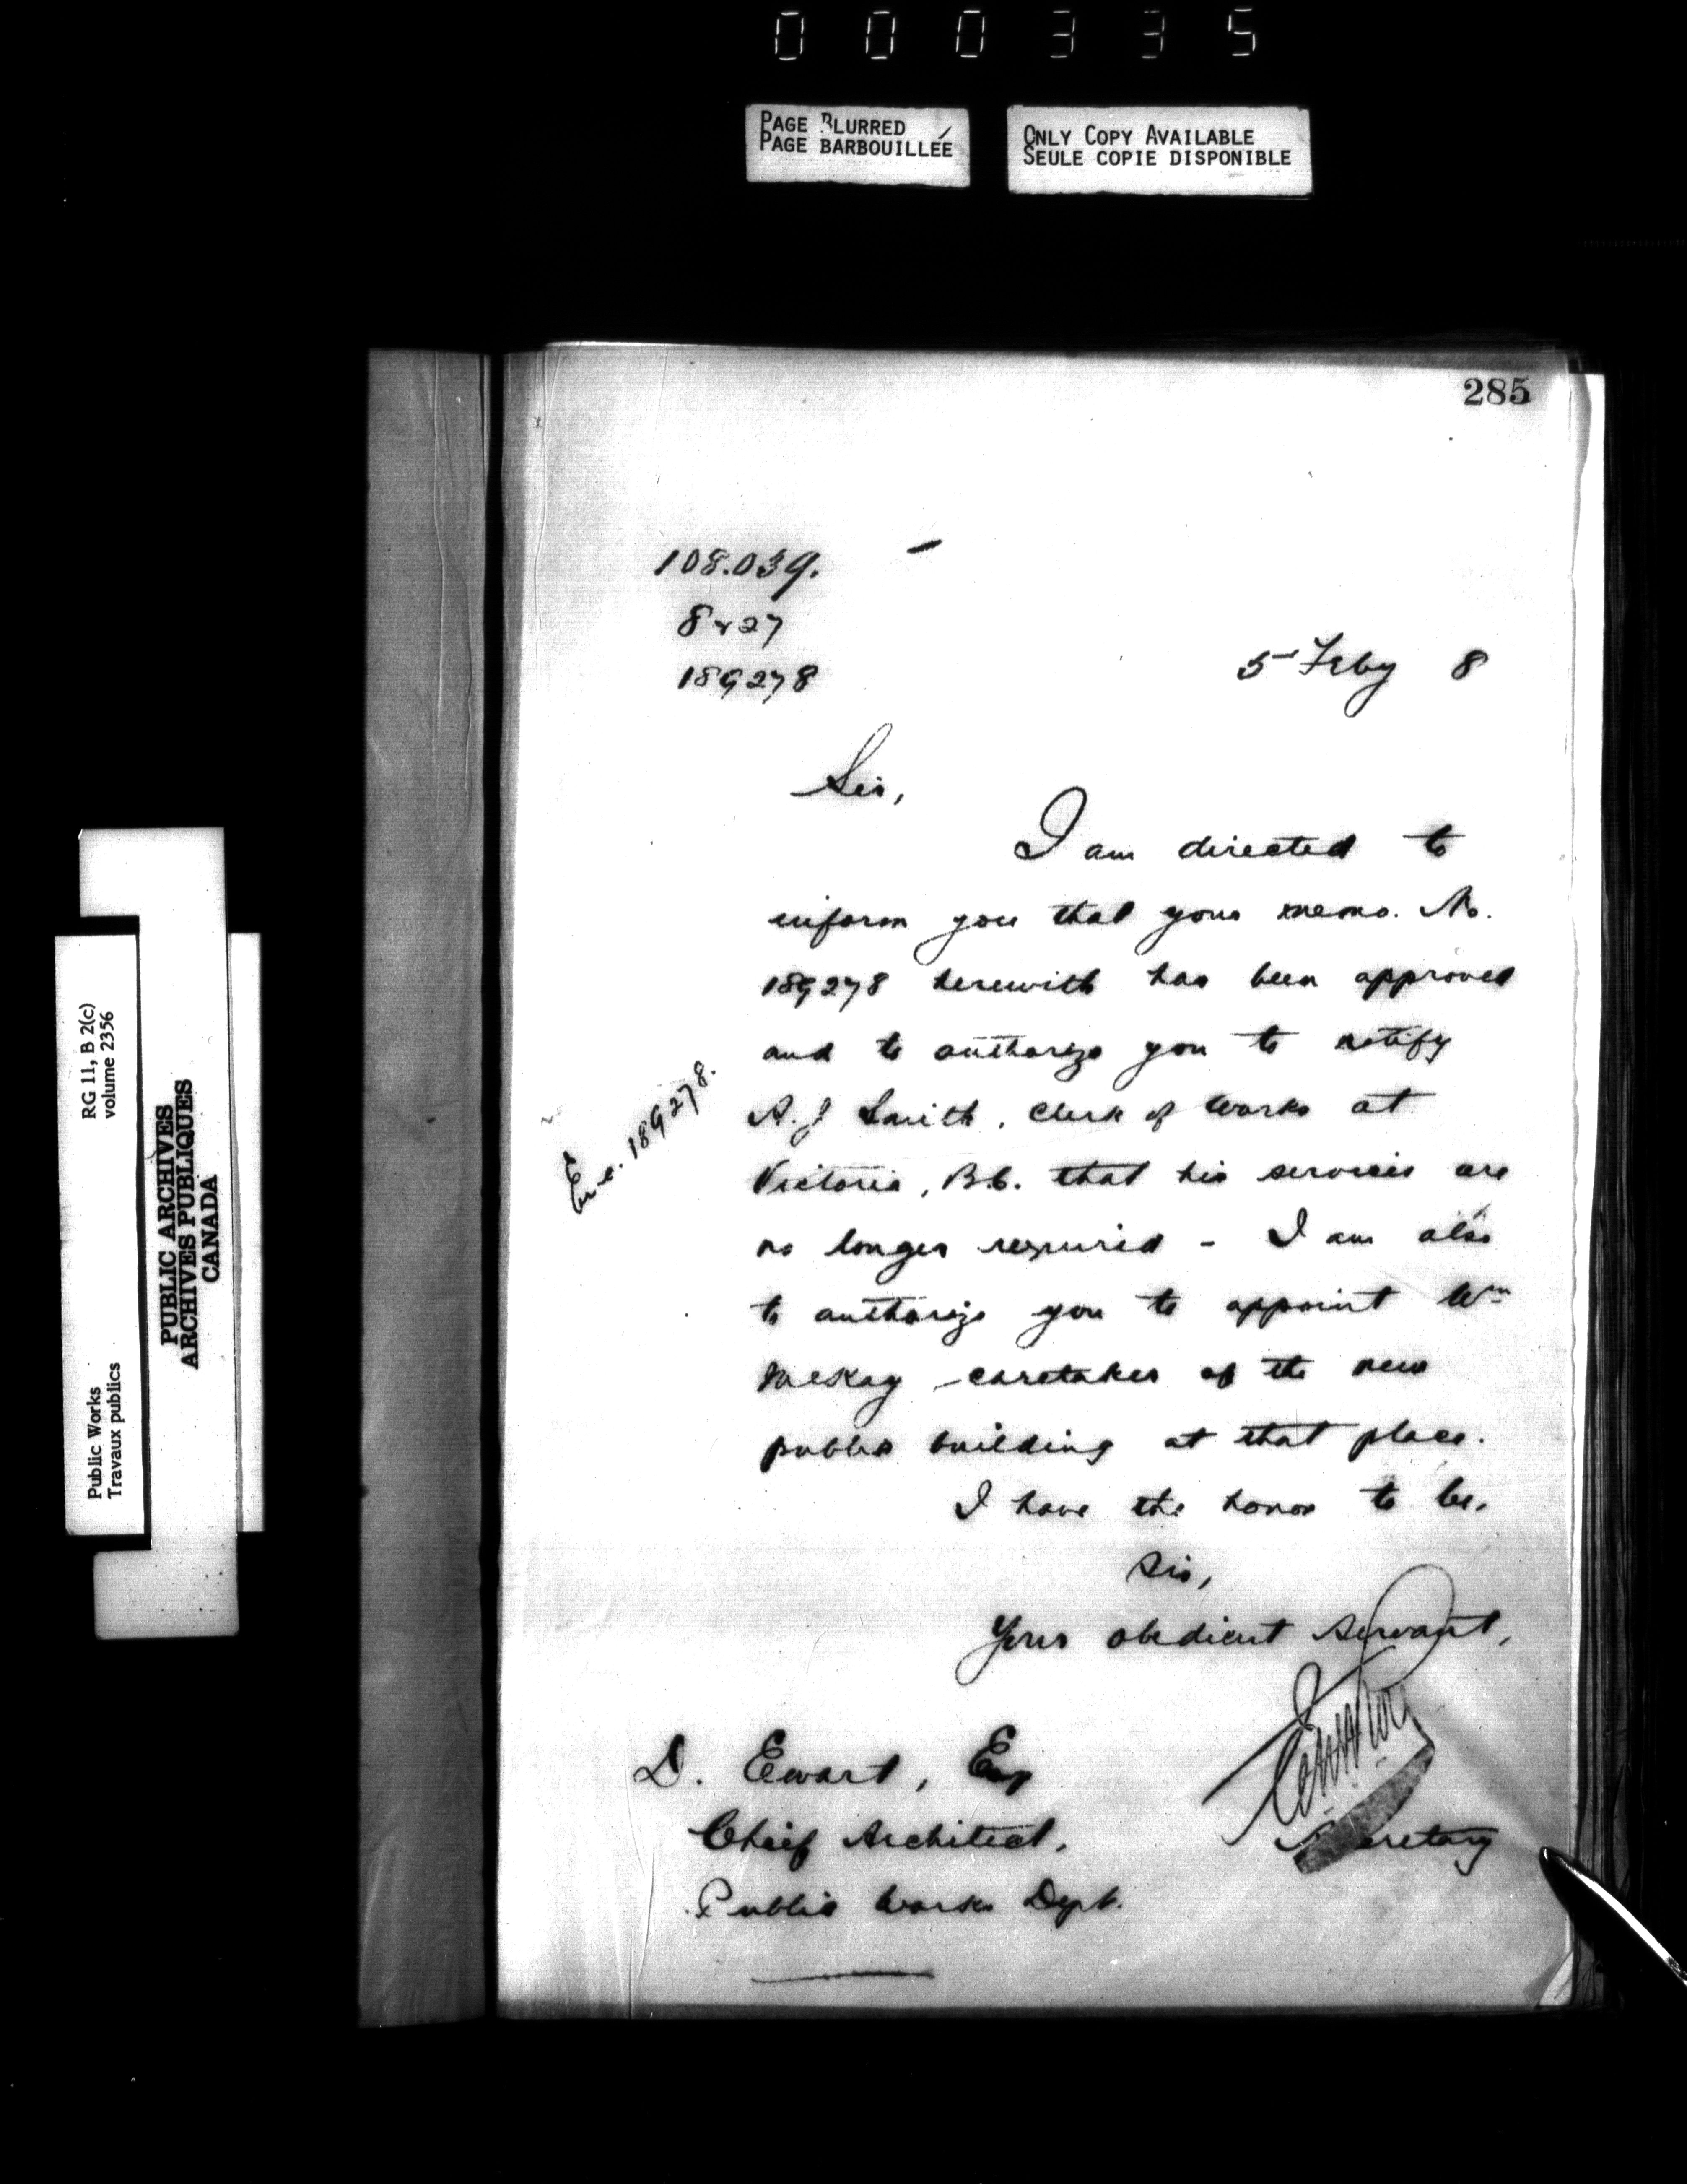 000335
PAGE BLURRED
PAGE BARBOUILLÉE
ONLY COPY AVAILABLE
SEULE COPIE DISPONIBLE
285
108.039.
8 & 27
189278
5 Feby 8
Sir,
I am directed to
inform you that your memo. No.
189278 herewith has been approved
and to authorize you to notify
A. J Smith, Clerk of Works at
Victoria, B.C. that his services are
no longer required - I am also
to authorize you to appoint Wm
McKay caretaker of the new
public building at that place.
I have the honor to be,
Sir,
Your obedient servant,
Secretary
D. Ewart, Esq
Chief Architect,
Public Works Dept.
Enc. 189278.
RG 11, B 2(c)
volume 2356
Public Works
Travaux publics
PUBLIC ARCHIVES
ARCHIVES PUBLIQUES
CANADA